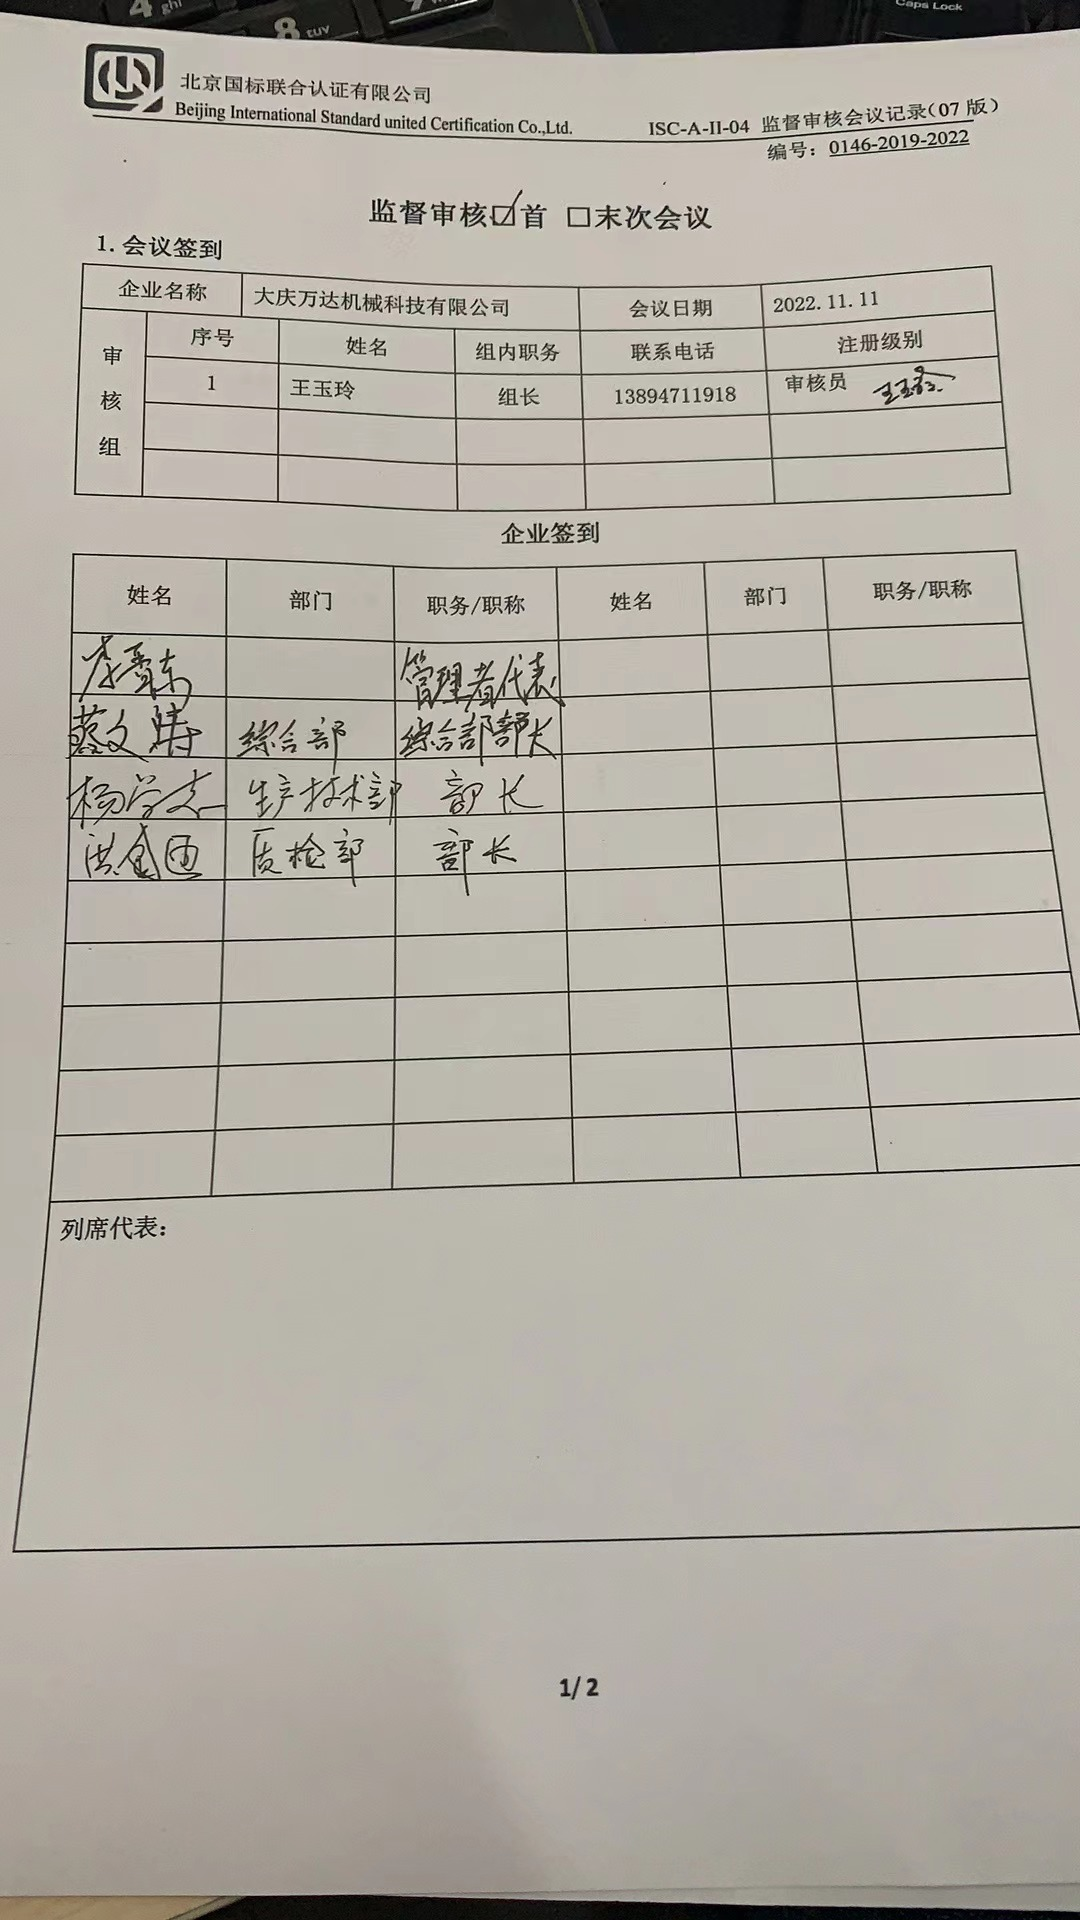 4 ghi
8 tuv
Caps Lock
北京国标联合认证有限公司
Beijing International Standard united Certification Co.,Ltd.
ISC-A-II-04 监督审核会议记录(07 版)
编号：0146-2019-2022
监督审核☑首 □末次会议
1.会议签到
企业名称 大庆万达机械科技有限公司 会议日期 2022.11.11
审核组 序号 姓名 组内职务 联系电话 注册级别
1 王玉玲 组长 13894711918 审核员 王玉玲
企业签到
姓名 部门 职务/职称 姓名 部门 职务/职称
李 东 管理者代表
蔡文涛 综合部 综合部部长
杨学志 生产技术部 部长
洪 质检部 部长
列席代表：
1/2